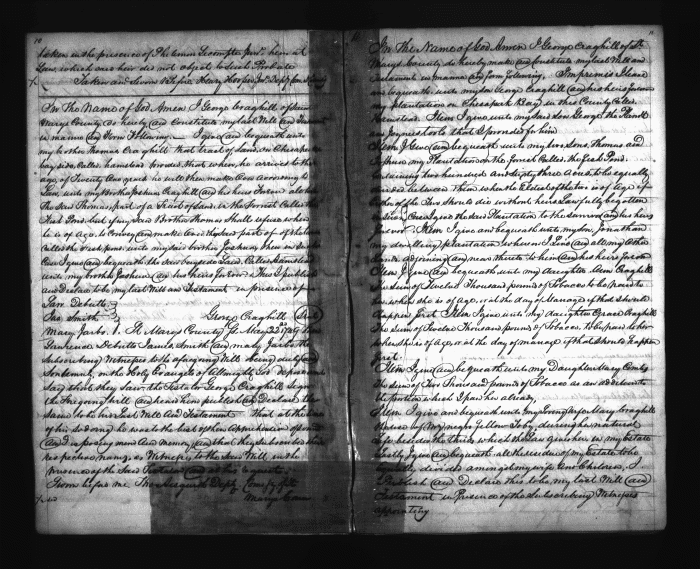 10
taken in the presence of Philemon Lecompte Junr. heir at
Law, which said heir did not object to sich Probate
In the Name of God Amen I George Craghill of Saint
Marys County do hereby and Constitute my last Will and Testament
in manner and Form Following. I give and bequeath unto
my brother Thomas Craghill that tract of Land on Chesapeake
bay side, Called provided, that when he arrives to the
age of Twenty One years he will then make Over According to
Law, unto my Brother Joshua Craghill and his heirs forever all
The said Thomas, part of a Tract of Land in the Forrest Called the
Fresh Pond, but if my said Brother Thomas Shall refuse when
he is of age to Convey and make Over the said part of of Land
Called the Fresh pond, unto my said brother Joshua, then in such
Case I give and bequeath the
unto my brother Joshua and his heirs forever. This I publish
and Declare to be my last Will and Testament in presence of
Law. Debutts
Jas. Smith
George Craghill (Seal)
Mary Jarbo. St. Marys County Ss. May 22d
Lawrence Debutts James Smith and Mary Jarbo the
subscribing Witnesses to the aforegoing Will being duly and
Solemnly, on the Holy Evangels of Almighty God deposed and
Say that they saw the Testator George Craghill Sign
the Foregoing Will and heard him publish and Declare the
same to be his Last Will and Testament that at the time
of his so doing he was to the best of their Apprehension of sound
and disposing mind and memory, and that they subscribed their
respective names as Witnesses to the said Will in the
presence of the said Testator and at his request.
Sworn before me Thos.
11
In the Name of God Amen I George Craghill of St.
Marys County do hereby make and Constitute my last Will and
Testament in manner and form following. Imprimis I leave
and bequeath unto my son George Craghill and his heirs forever
my plantation on Chesapeak Bay in this County Called
Item I give unto my said son George the Plank
and Joyners tools that I provided for him
Item I Give and bequeath unto my two sons, Thomas and
Joshua my Plantation in the forrest Called the Fresh Pond
Containing two hundred and eighty three Acres to be equally
divided between them when the Eldest of the two is of age if
either of the two should die without heirs Lawfully begotten
in such Case I give the said Plantation to the survivor and his heirs
forever. Item I give and bequeath unto my son Jonathan
my dwelling plantation whereon I Live and all my other
Lands adjoining and near thereto to him and his heirs forever
Item I give and bequeath unto my daughter Ann Craghill
the sum of Twelve Thousand pounds of Tobacco to be paid to
her when she is of age, or at the day of Mariage if that should
happen first. Item I give unto my daughter Grace Craghill
the sum of Twelve Thousand pounds of Tobacco to be paid to her
when she is of age, or at the day of mariage if that should happen
first.
Item I give and bequeath unto my Daughter Mary Combs
the sum of Two Thousand pounds of Tobacco as an addition to
the portion which I paid her already,
Item I give and bequeath unto my Loving wife Mary Craghill
the use of my negro fellow Toby, during her natural
Life besides the thirds which the Law gives her in my Estate
Lastly I give and bequeath all the residue of my Estate to be
Equally divided amongst my wife and Children, I
Publish and Declare this to be my last Will and
Testament in Presence of the subscribing Witnesses